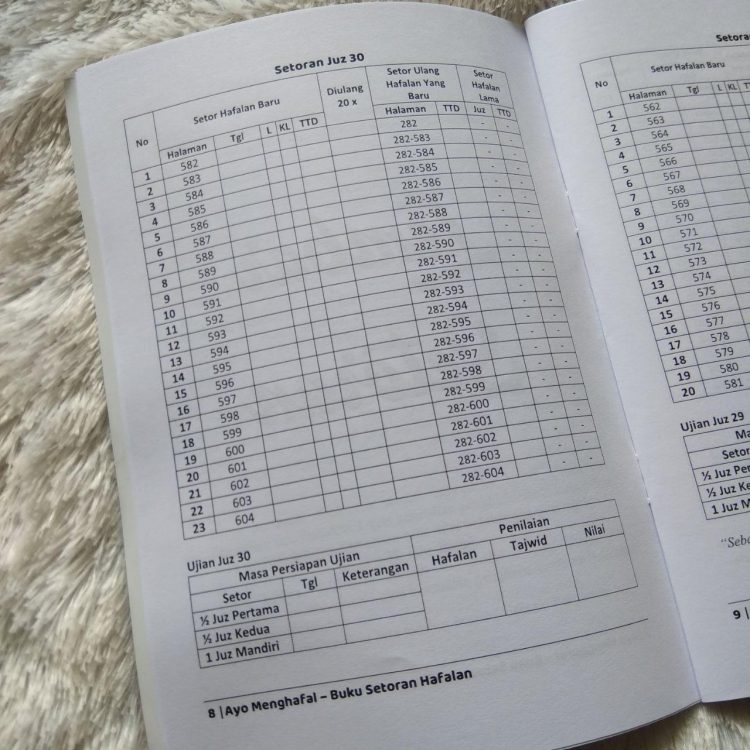 Setoran Juz 30
No Setor Hafalan Baru Diulang 20 x Setor Ulang Hafalan Yang Baru Setor Hafalan Lama
Halaman Tgl L KL TTD Halaman TTD Juz TTD
1 582 282 - -
2 583 282-583 - -
3 584 282-584 - -
4 585 282-585 - -
5 586 282-586 - -
6 587 282-587 - -
7 588 282-588 - -
8 589 282-589 - -
9 590 282-590 - -
10 591 282-591 - -
11 592 282-592 - -
12 593 282-593 - -
13 594 282-594 - -
14 595 282-595 - -
15 596 282-596 - -
16 597 282-597 - -
17 598 282-598 - -
18 599 282-599 - -
19 600 282-600 - -
20 601 282-601 - -
21 602 282-602 - -
22 603 282-603 - -
23 604 282-604 - -
Ujian Juz 30
Masa Persiapan Ujian Penilaian
Setor Tgl Keterangan Hafalan Tajwid Nilai
½ Juz Pertama
½ Juz Kedua
1 Juz Mandiri
8 | Ayo Menghafal – Buku Setoran Hafalan
No Setor Hafalan Baru
Halaman Tgl L KL
1 562
2 563
3 564
4 565
5 566
6 567
7 568
8 569
9 570
10 571
11 572
12 573
13 574
14 575
15 576
16 577
17 578
18 579
19 580
20 581
Ujian Juz 29
½ Juz
½ Juz
1 Juz
9 |